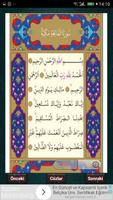 14:10
سورة الفاتحة مكية
بِسْمِ اللهِ الرَّحْمٰنِ
الرَّحِيمِ الْحَمْدُ لِلهِ رَبِّ
الْعَالَمِينَ الرَّحْمٰنِ الرَّحِيمِ
مَالِكِ يَوْمِ الدِّينِ إِيَّاكَ نَعْبُدُ
وَإِيَّاكَ نَسْتَعِينُ اهْدِنَا الصِّرَاطَ
الْمُسْتَقِيمَ صِرَاطَ الَّذِينَ أَنْعَمْتَ
عَلَيْهِمْ غَيْرِ الْمَغْضُوبِ عَلَيْهِمْ
وَلَا الضَّالِّينَ
Önceki Cüzler Sonraki
En Güncel ve Kapsamlı İçerik
Belçika Üni. Sertifikalı Eğitim